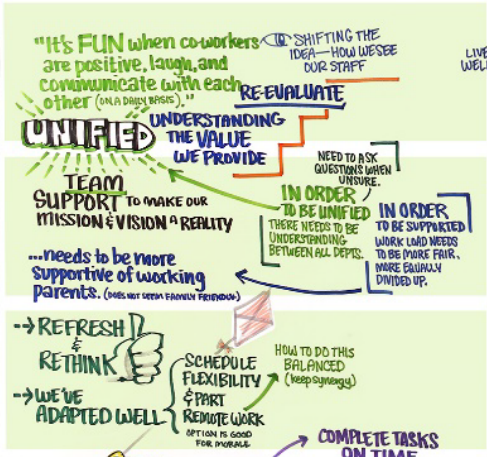 "It's FUN when co-workers
are positive, laugh, and
communicate with each
other (ON A DAILY BASIS)."
SHIFTING THE
IDEA—HOW WE SEE
OUR STAFF
LIVE
WELL
RE-EVALUATE
UNIFIED
UNDERSTANDING
THE VALUE
WE PROVIDE
TEAM
SUPPORT TO MAKE OUR
MISSION & VISION A REALITY
NEED TO ASK
QUESTIONS WHEN
UNSURE.
IN ORDER
TO BE UNIFIED
THERE NEEDS TO BE
UNDERSTANDING
BETWEEN ALL DEPTS.
IN ORDER
TO BE SUPPORTED
WORK LOAD NEEDS
TO BE MORE FAIR.
MORE EQUALLY
DIVIDED UP.
...needs to be more
supportive of working
parents. (DOES NOT SEEM FAMILY FRIENDLY)
--> REFRESH
&
RETHINK
--> WE'VE
ADAPTED WELL
SCHEDULE
FLEXIBILITY
& PART
REMOTE WORK
OPTION IS GOOD
FOR MORALE
HOW TO DO THIS
BALANCED
(keep synergy)
COMPLETE TASKS
ON TIME